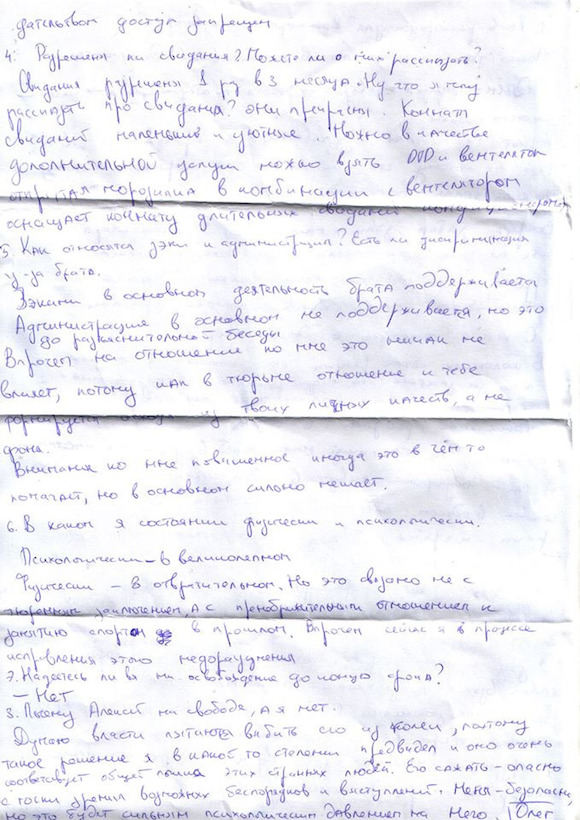 дательством доступ запрещен
4. Разрешены ли свидания? Можете ли о них рассказать?
Свидания разрешены 1 раз в 3 месяца. Ну что я могу
рассказать про свидания? Они прекрасны. Комната
свиданий маленькие и уютные. Можно в качестве
дополнительной услуги можно взять DVD и вентелятор
открытая морозилка в комбинации с вентелятором
оснащает комнату длительных свиданий кондиционером
5. Как относятся зэки и администрация? Есть ли дискриминация
из-за брата.
Зэками в основном деятельность брата поддерживается
Администрацие в основном не поддерживается, но это
до разъяснительной беседы
Впрочем на отношении ко мне это никак не
влияет, потому как в тюрьме отношение к тебе
формируется исходя из твоих личных качеств, а не
фона.
Внимания ко мне повышенное иногда это в чём то
помагает, но в основном сильно мешает.
6. В каком я состоянии физически и психологически.
Психологически – в великолепном
Физически – в отвратительном. Но это связано не с
тюремным заключением, а с пренебрижительным отношением к
занятию спортом в прошлом. Впрочем сейчас я в процессе
исправления этого недоразумения
7. Надеетесь ли вы на освобождение до конца срока?
– Нет
8. Почему Алексей на свободе, а я нет.
Думаю власти пытаются выбить его из колеи, поэтому
такое решение я в какой то степени предвидел и оно очень
соответствует общей логике этих странных людей. Его сажать – опасно
с точки зрения возможных беспорядков и выступлений. Меня – безопасно,
но это будет сильным психологическим давлением на него. Олег